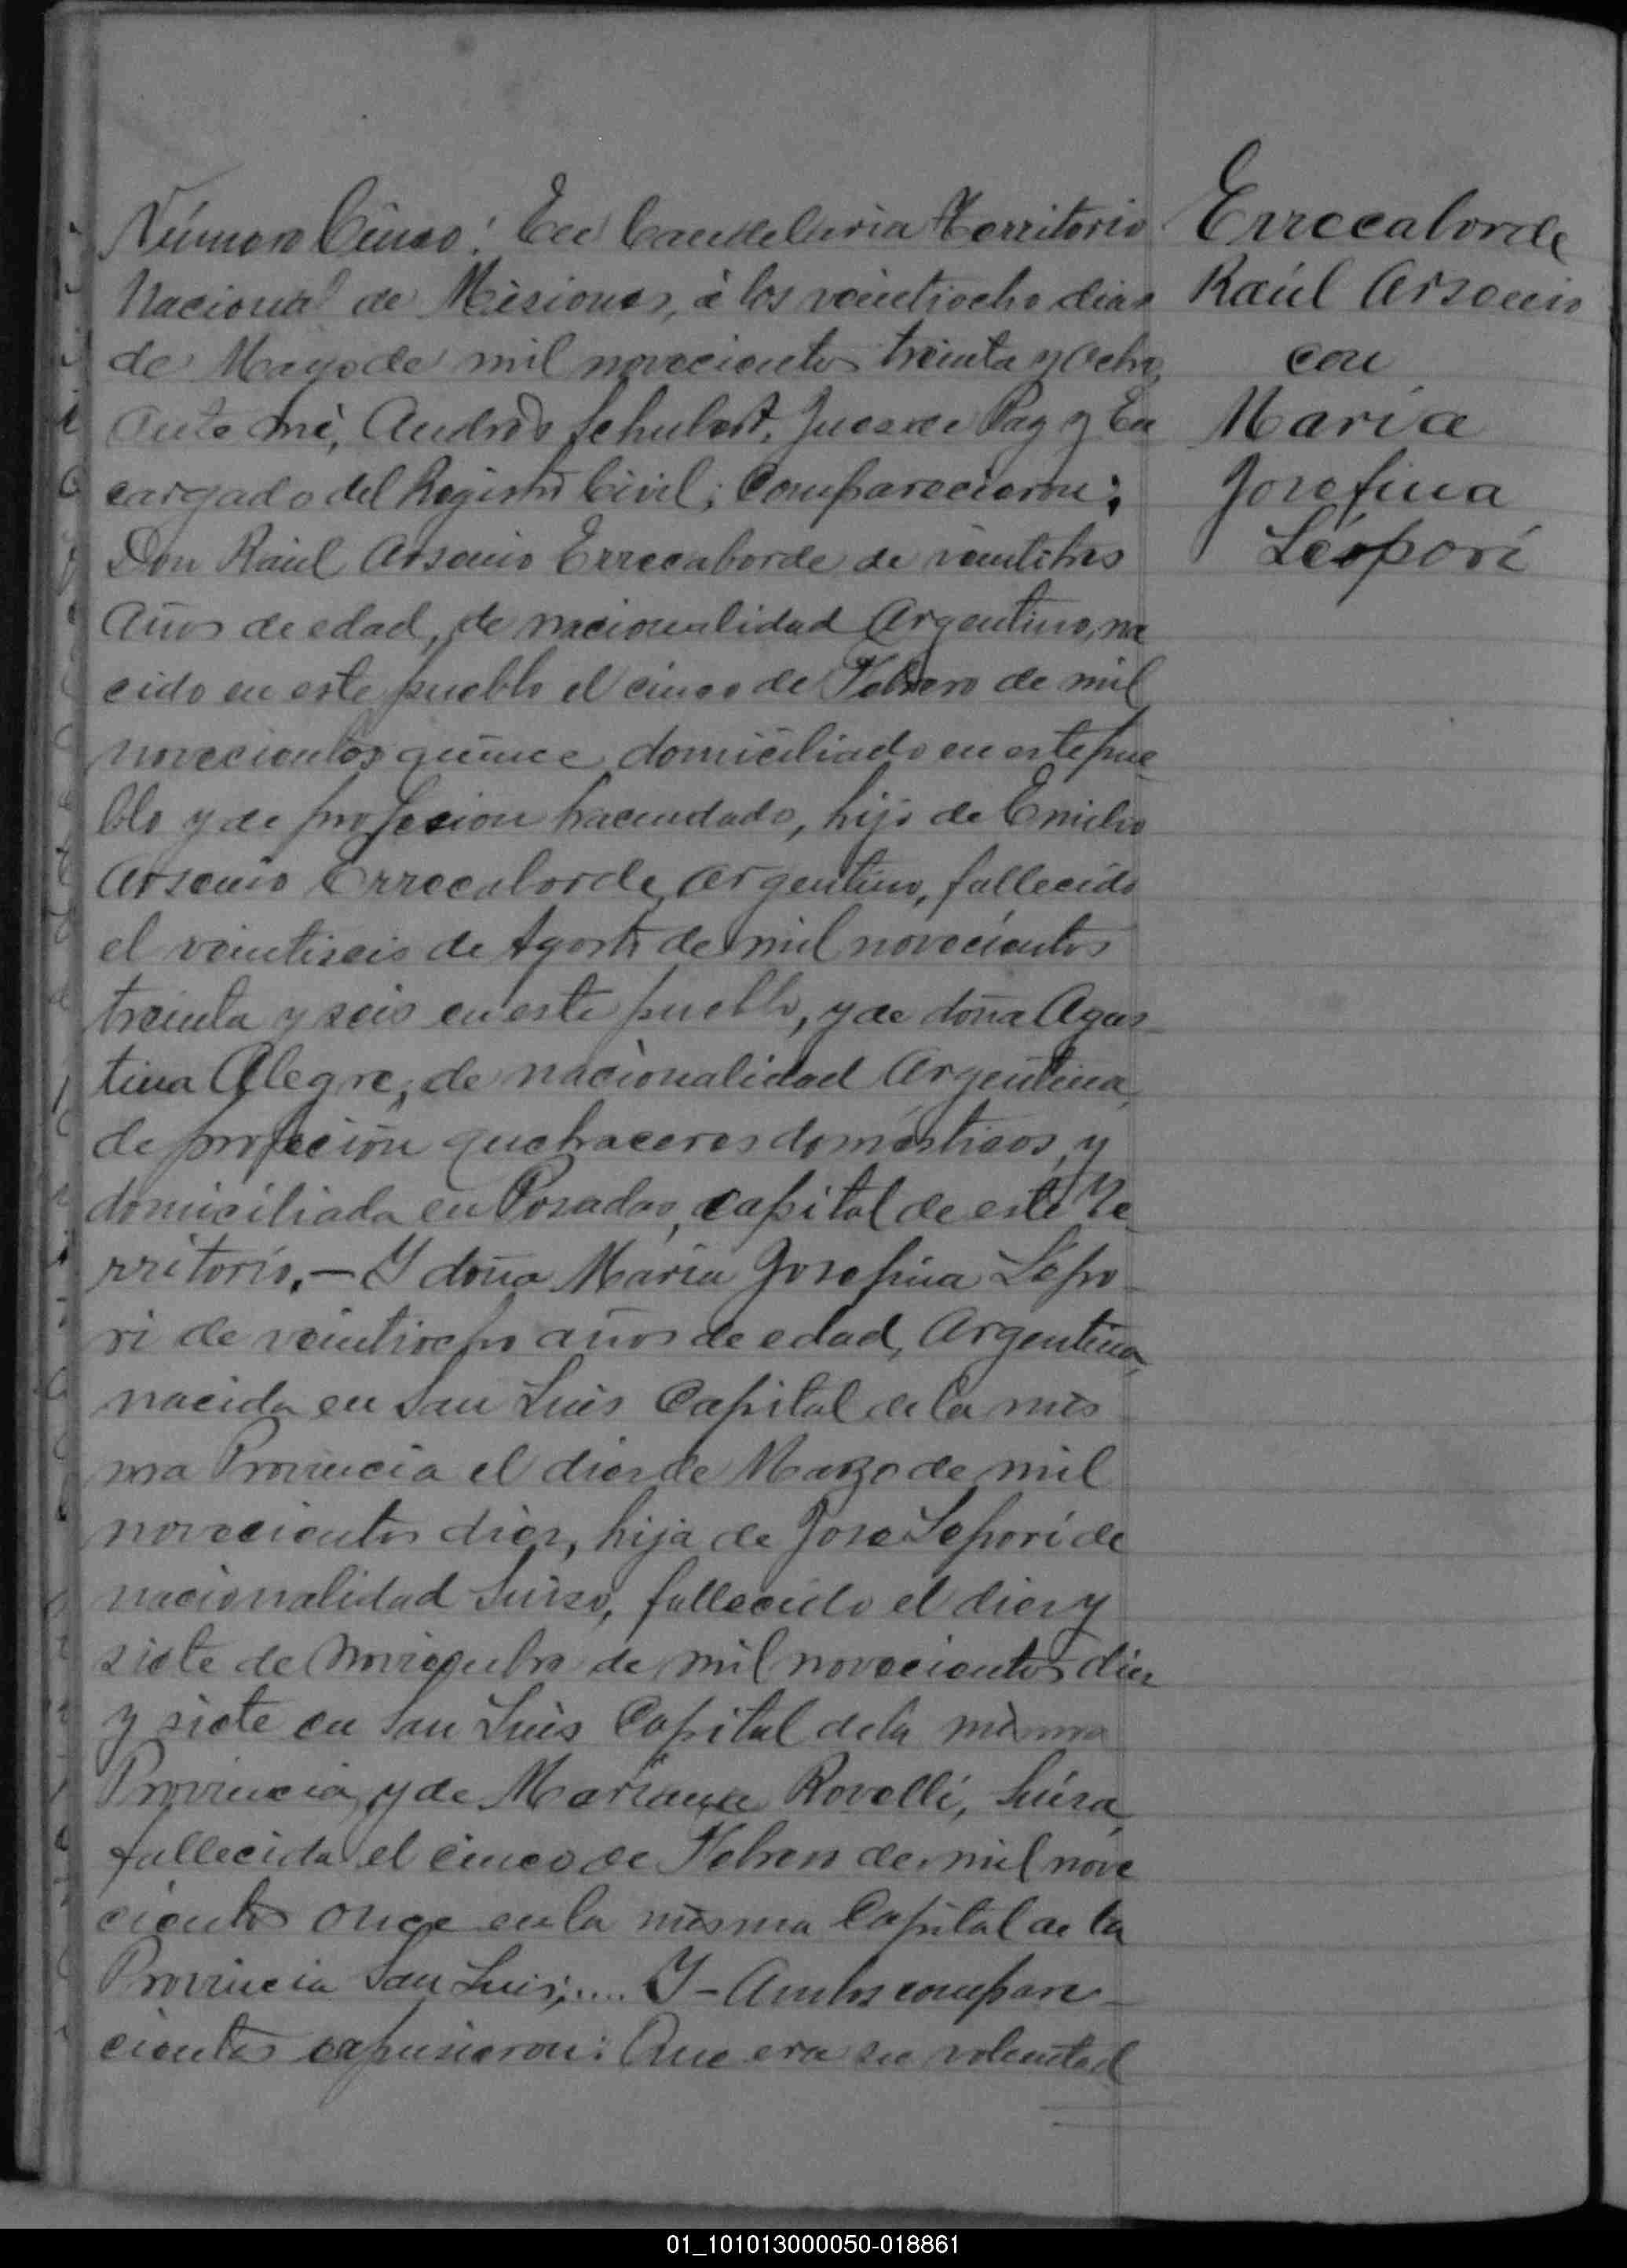 Errecaborde
Raúl Arsenio
con
María
Josefina
Lépori
Número Cinco: En Candelaria Territorio
Nacional de Misiones, á los veintiocho dias
de Mayo de mil novecientos treinta y ocho,
Ante mí, Andrés Schubert, Juez de Paz y En
cargado del Registro Civil; Comparecieron:
Don Raúl Arsenio Errecaborde de veintitres
años de edad, de nacionalidad Argentino, na
cido en este pueblo el cinco de Febrero de mil
novecientos quince domiciliado en este pue
blo y de profesion hacendado, hijo de Emilio
Arsenio Errecaborde, Argentino, fallecido
el veintiseis de Agosto de mil novecientos
treinta y seis en este pueblo, y de doña Agus
tina Alegre, de nacionalidad Argentina,
de profeción quehaceres domésticos, y
domiciliada en Posadas, capital de este Te
rritorio.— Y doña María Josefina Lépo
ri de veintiocho años de edad, Argentina,
nacida en San Luis Capital de la mis
ma Provincia el dies de Marzo de mil
novecientos dies, hija de José Lepori de
nacionalidad Suizo, fallecido el dies y
siete de Noviembre de mil novecientos diez
y siete en San Luis Capital de la misma
Provincia, y de Mariana Rovelli, Suiza,
fallecida el cinco de Febrero de mil nove
cientos once en la misma Capital de la
Provincia San Luis;.... Y - Ambos compare
cientes expusieron: Que era su voluntad
01_101013000050-018861